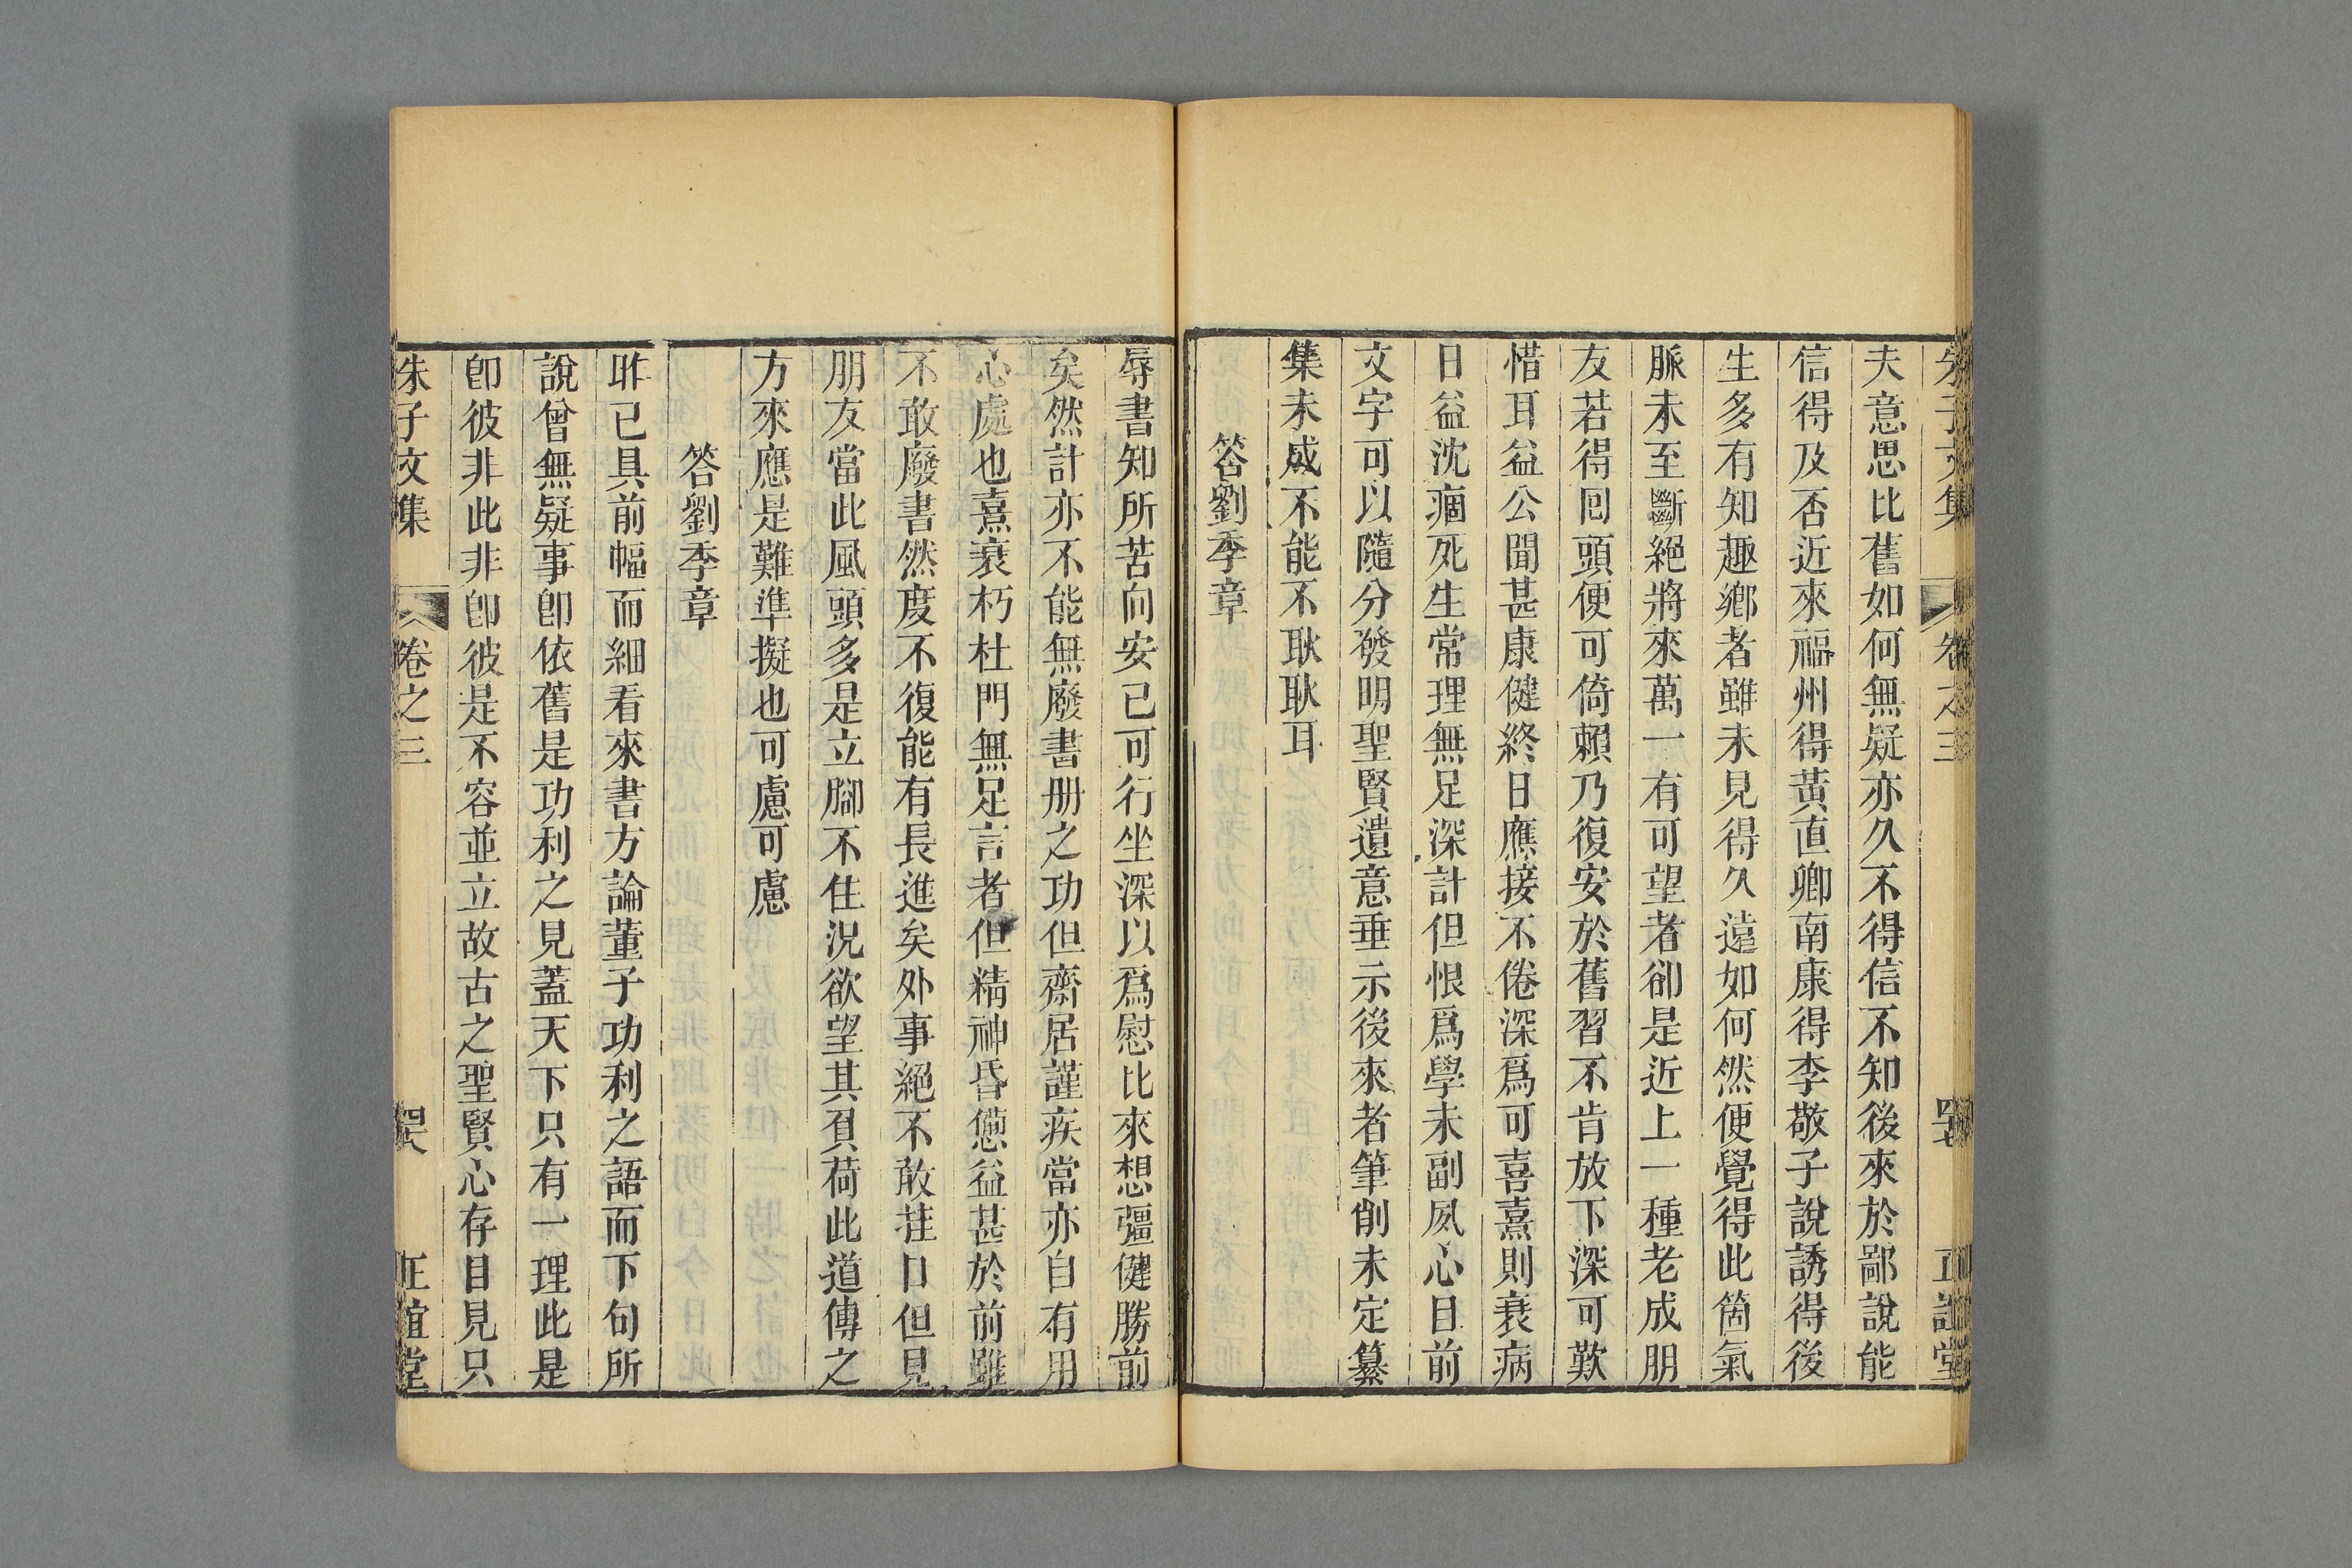 朱子文集 卷之三 四七 正誼堂
夫意思比舊如何無疑亦久不得信不知後來於鄙說能
信得及否近來福州得黃直卿南康得李敬子說誘得後
生多有知趣鄉者雖未見得久遠如何然便覺得此箇氣
脈未至斷絕將來萬一有可望者卻是近上一種老成朋
友若得囘頭便可倚賴乃復安於舊習不肯放下深可歎
惜耳益公聞甚康健終日應接不倦深爲可喜熹則衰病
日益沈痼死生常理無足深計但恨爲學未副夙心目前
文字可以隨分發明聖賢遺意垂示後來者筆削未定纂
集未成不能不耿耿耳
答劉季章
辱書知所苦向安已可行坐深以爲慰比來想彊健勝前
矣然計亦不能無廢書册之功但齋居謹疾當亦自有用
心處也熹衰朽杜門無足言者但精神昏憊益甚於前雖
不敢廢書然度不復能有長進矣外事絕不敢挂口但見
朋友當此風頭多是立腳不住況欲望其負荷此道傳之
方來應是難準擬也可慮可慮
答劉季章
昨已具前幅而細看來書方論董子功利之語而下句所
說曾無疑事卽依舊是功利之見蓋天下只有一理此是
卽彼非此非卽彼是不容並立故古之聖賢心存目見只
朱子文集 卷之三 四六 正誼堂